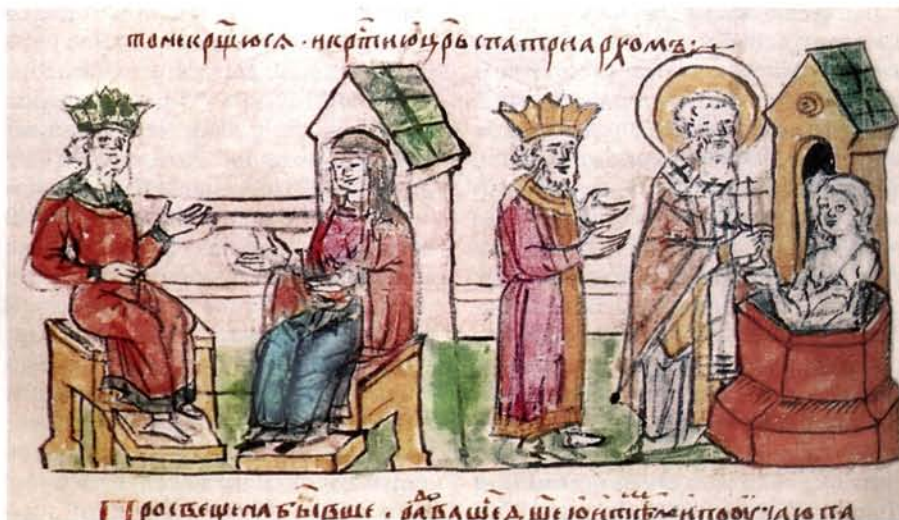 то не крщ҃юся · и крт҃и ю цр҃ь с патриархомъ :
Просвещена бывше · радоваше д҃шею и тѣлеⷨ и пооучаю па